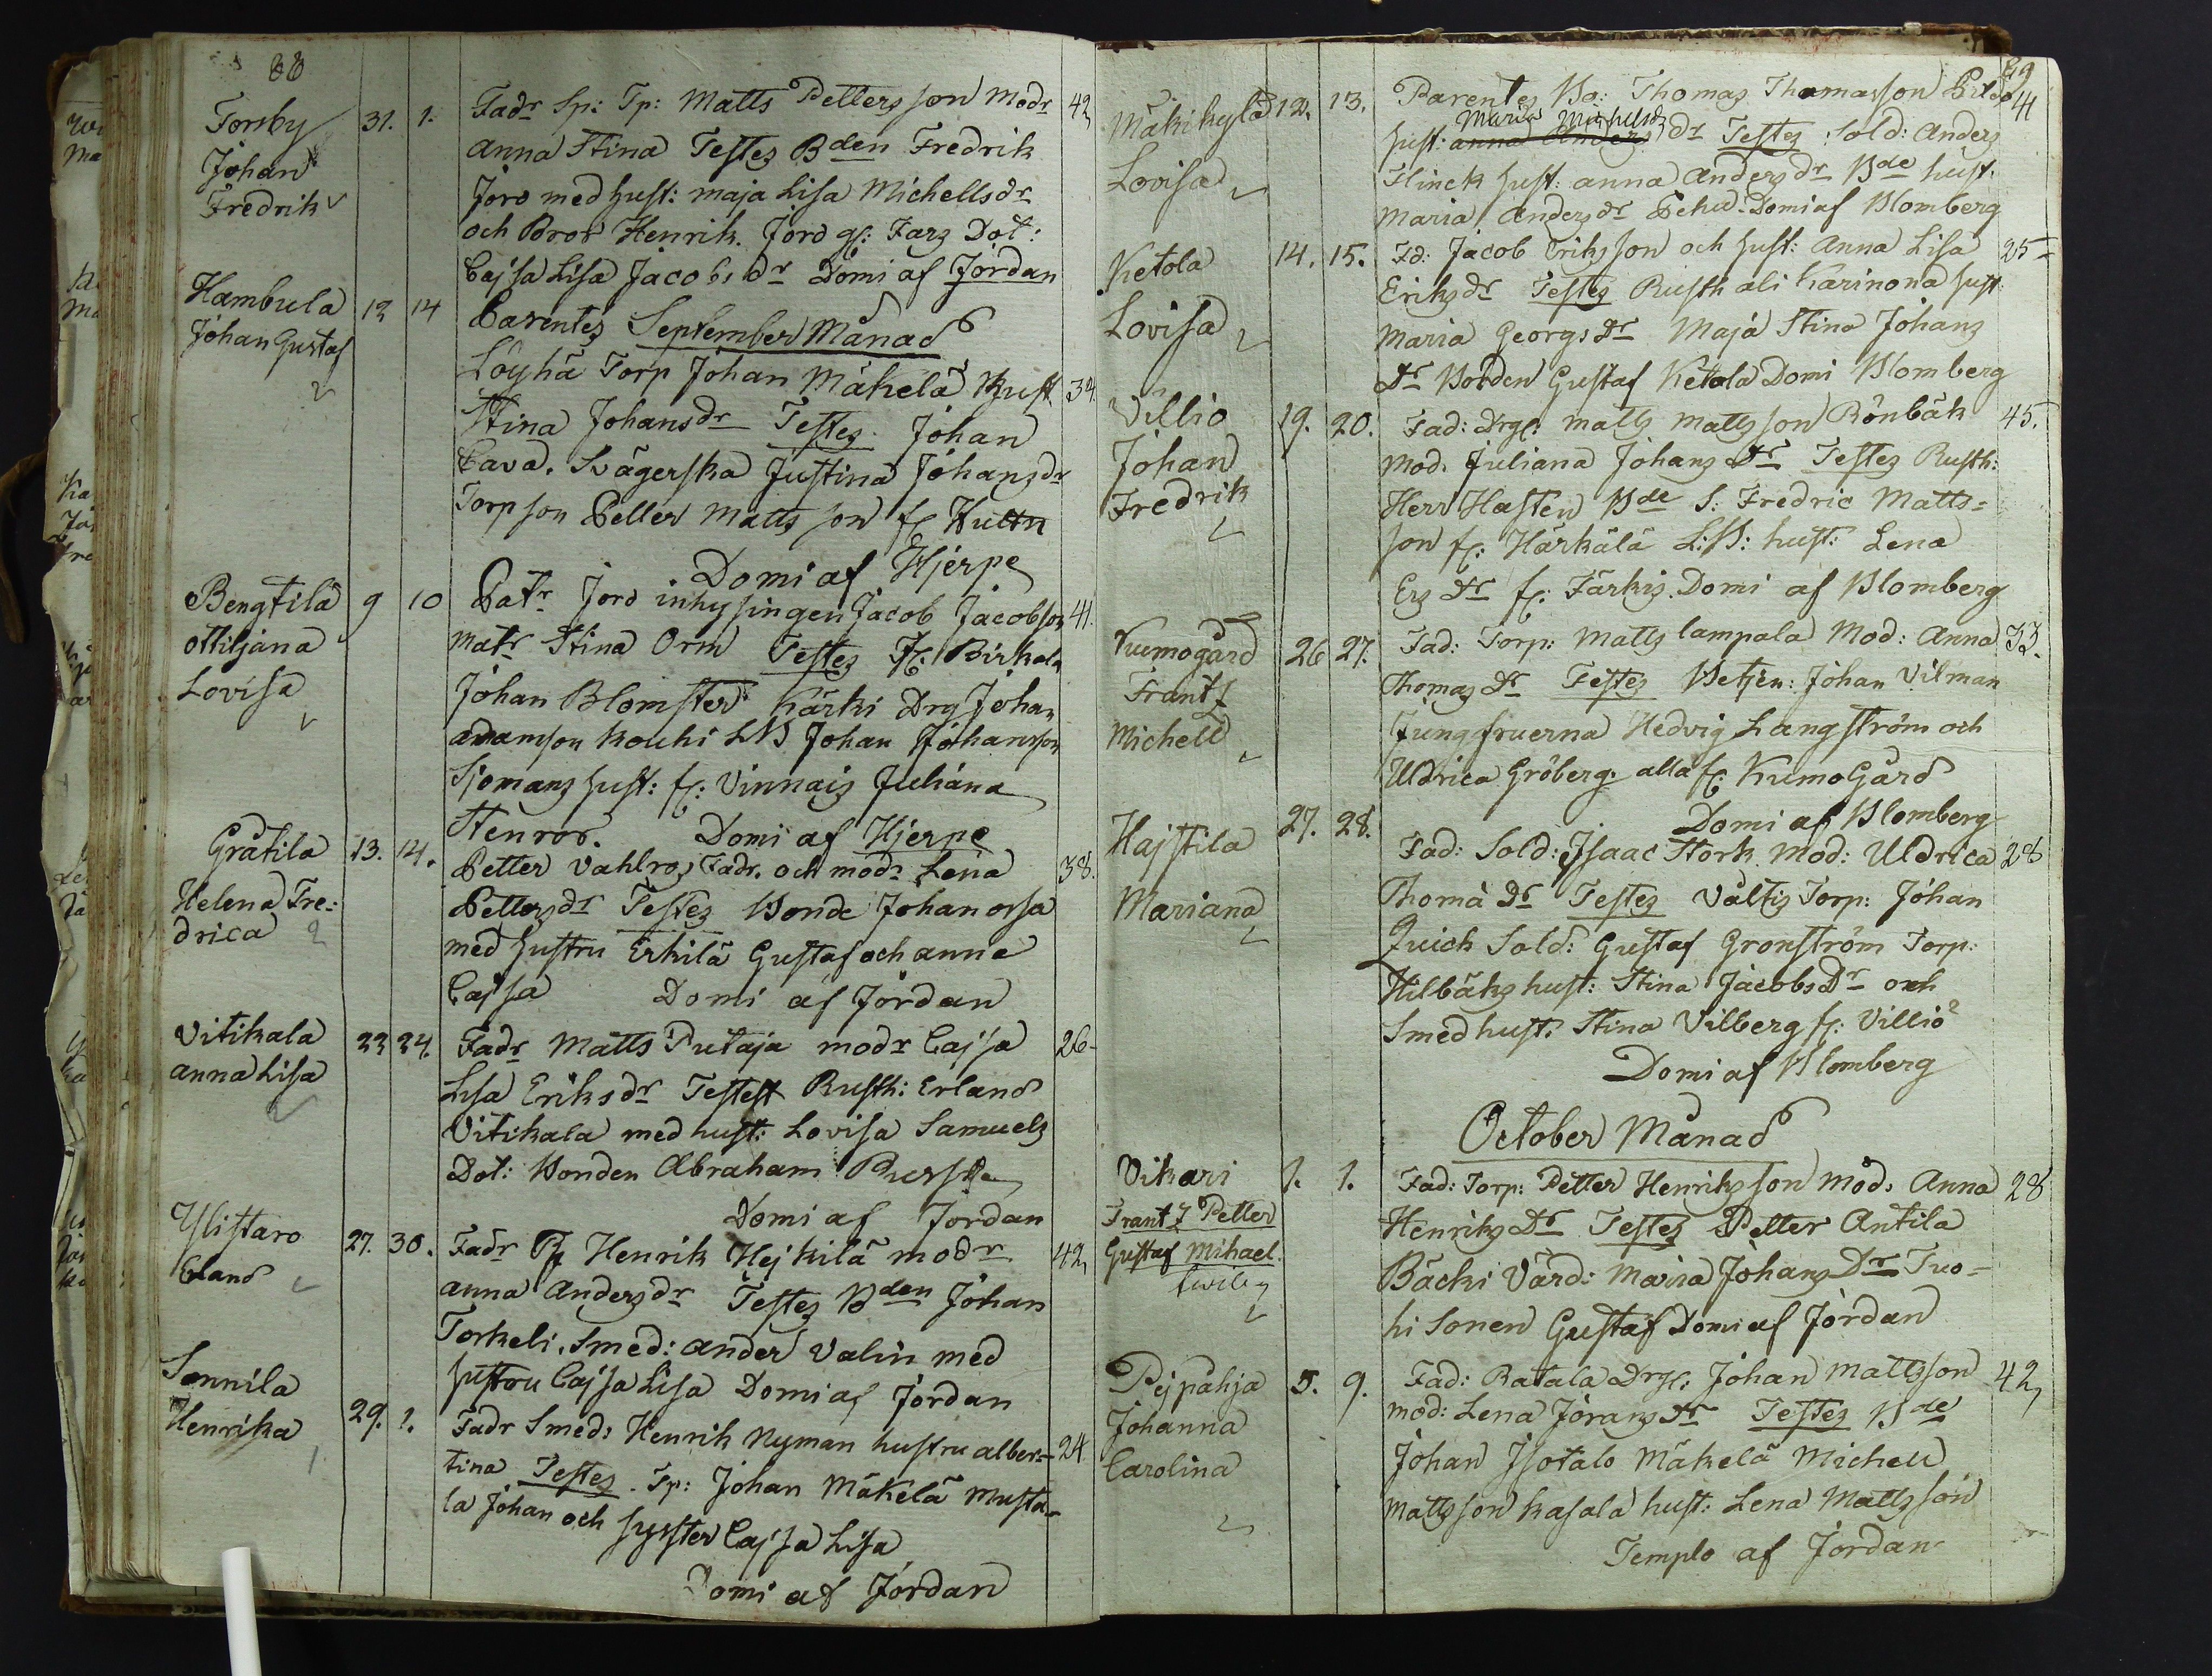 88
Torsby 31. 1. Fadr Sp: Tp: Matts Pettersson Modr 42
Johan Anna Stina Testes Bden Fredrik
Fredrik Jord med hust: Maja Lisa Michellsdr
och Bror Henrik. Jord gf: Fars Dot:
Cajsa Lisa Jacobsdr Domi af Jordan
Hambula 12 14 Parentes September Månad
Johan Gustaf
Löyhä Torp Johan Mäkelä Hust 34.
Stina Johansdr Testes Johan
Cava. Svägerska Justina Johansdr
Torpson Petter Mattsson fr
Domi af Hjerpe
Bengtilä 9 10 Patr Jord inhysingen Jacob Jacobson 41.
Ottiljana Matr Stina Orm Testes fr: Birkala
Lovisa Johan Blomster Kärki Drg Johan
Adamson Kouhi LB Johan Johansson
Sjomans hust: fr: Vinnais Juliana
Stenros. Domi af Hjerpe
Gratila 13. 14. Petter Vahlros Fadr. och modr Lena 38.
Helena Fre= Pettersdr Testes Bonde Johan Ossa
drica med hustru Erkilä Gustaf och Anna
Cajsa Domi af Jordan
Vitikala 23 24. Fadr Matts Putaja modr Cajsa 26-
Anna Lisa Lisa Eriksdr Testes Rusth: Erland
Vitikala med hust: Lovisa Samuels
Dot: Bonden Abraham
Domi af Jordan
Ylistaro 27. 30. Fadr Henrik Hejkilä modr 42
Anna Andersdr Testes Bden Johan
Torkeli. Smed: Ander Valin med
hustru Cajsa Lisa Domi af Jordan
Sonnila
Henrika 29. 1. Fadr Smed: Henrik Nyman hustru Alber= 24
tina Testes. Tp: Johan Mäkelä Musta-
la Johan och syster Cajsa Lisa
Domi af Jordan
89
Mäkikylä 12. 13. Parentes Bo: Thomas Thomasson 41
Maria Michelsd
Lovisa hust: Anna Anders dr Testes: Sold: Anders
Flinck hust: Anna Andersdr Bde hust.
Maria Andersdr Domi af Blomberg
Ketola 14. 15. Fd: Jacob Eriksson och hust: Anna Lisa 25-
Eriksdr Testes Rusth Ali Karinona hust.
Lovisa Maria Georgsdr Maja Stina Johans
Dr Bonden Gustaf Ketola Domi Blomberg
Villio 19. 20. Fad: Drg: Matts Mattsson Rönbäk 45.
Johan Mod. Juliana Johans Dr Testes Rusth:
Fredrik Herr Hasten Bde S: Fredric Matts=
son fr: Härkälä L:B: hust: Lena
Ers Dr fr: Färkis. Domi af Blomberg
Kuemogård 26 27. Fad: Torp: Matts Lampala Mod: Anna 33.
Frants Thomas Dr Testes Betjen: Johan Vilman
Michell Jungfruerna Hedvig Langström och
Uldrica Gröberg. alla fr: Kumogård
Domi af Blomberg
Hajstila 27. 28. Fad: Sold: Isaac Stork Mod: Uldrica 28
Mariana Thoma Dr Testes Valtis Torp: Johan
Quick Sold: Gustaf Gronström Torp:
Hilbäks hust: Stina Jacobs Dr och
Smed hust: Stina Vilberg fr: Villiö
Domi af Blomberg
October Månad
Vikari 1. 1. Fad: Torp: Petter Henriksson Mod: Anna 28
Frants Petter Henriks Dr Testes Petter Antila
Gustaf Mihael. Bäcki Värd: Maria Johans Dr Tuo-
hi Sonen Gustaf Domi af Jordan
Pejpahja 5. 9. Fad: Ratala Drg: Johan Mattsson 42
Johanna mod: Lena Jorans dr Testes Bde
Carolina Johan Isotalo Mäkelä Michell
Mattsson Kasala hust: Lena Mattsson
Templo af Jordan